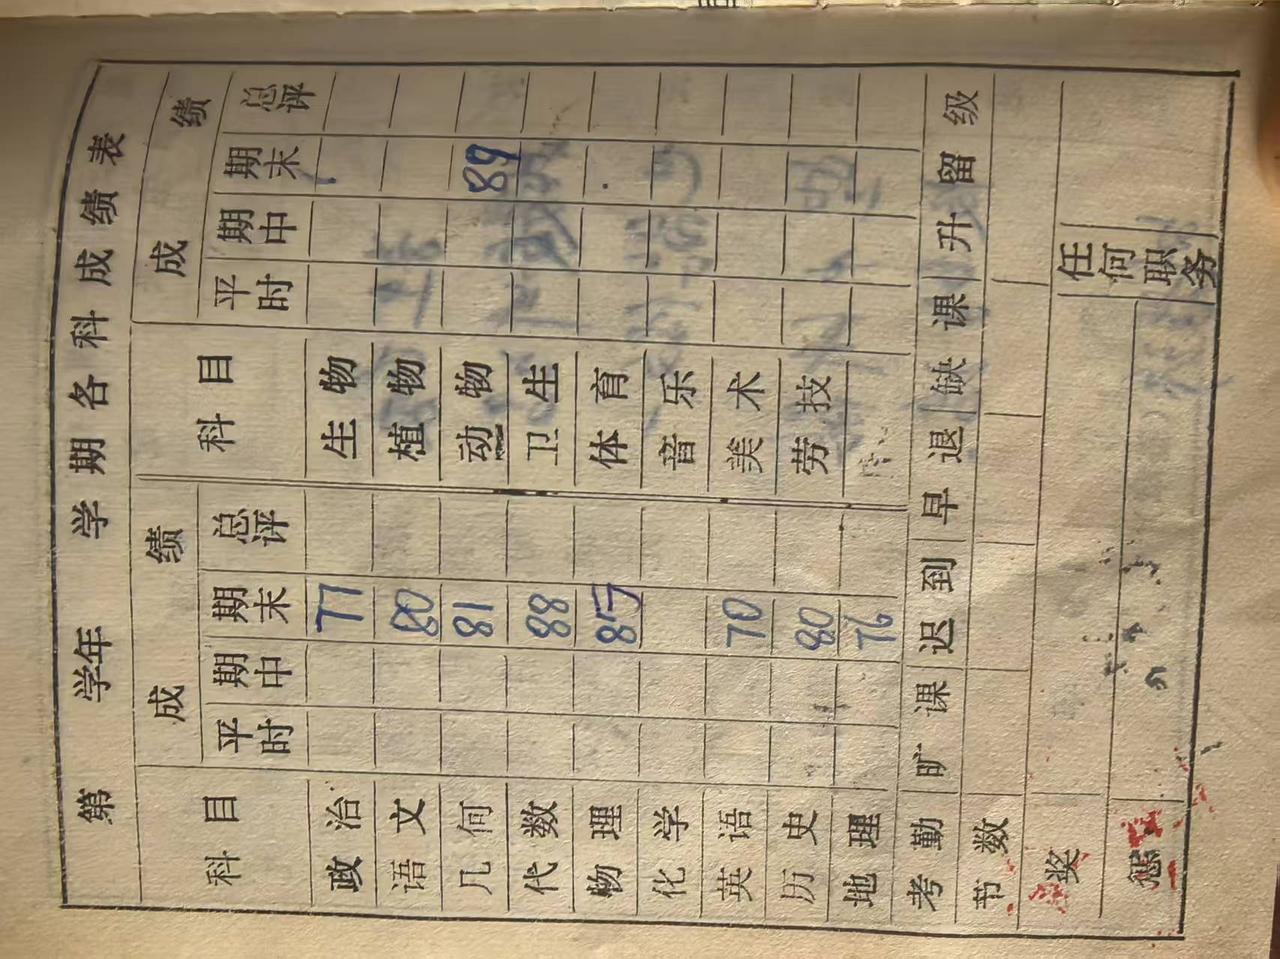 第 学年 学期各科成绩表
科目 成绩 科目 成绩
平时 期中 期末 总评 平时 期中 期末 总评
政治 77 生物
语文 80 植物
几何 81 动物 89
代数 88 卫生
物理 85 体育
化学 音乐
英语 70 美术
历史 80 劳技
地理 76
考勤 旷课 迟到 早退 缺课 升留级
节数
奖 任何职务
惩